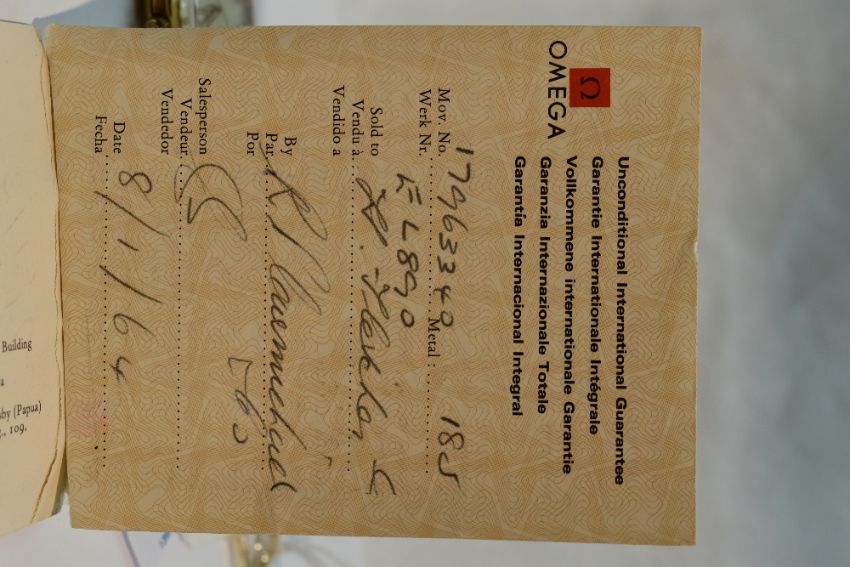 Ω
OMEGA
Unconditional International Guarantee
Garantie Internationale Intégrale
Vollkommene internationale Garantie
Garanzia Internazionale Totale
Garantia Internacional Integral
Mov. No. 17963340 Metal: 18
Werk Nr.
L890
Sold to
Vendu à
Vendido a
By
Par
Por
Salesperson
Vendeur
Vendedor
Date 8/1/64
Fecha
Building
(Papua)
109,